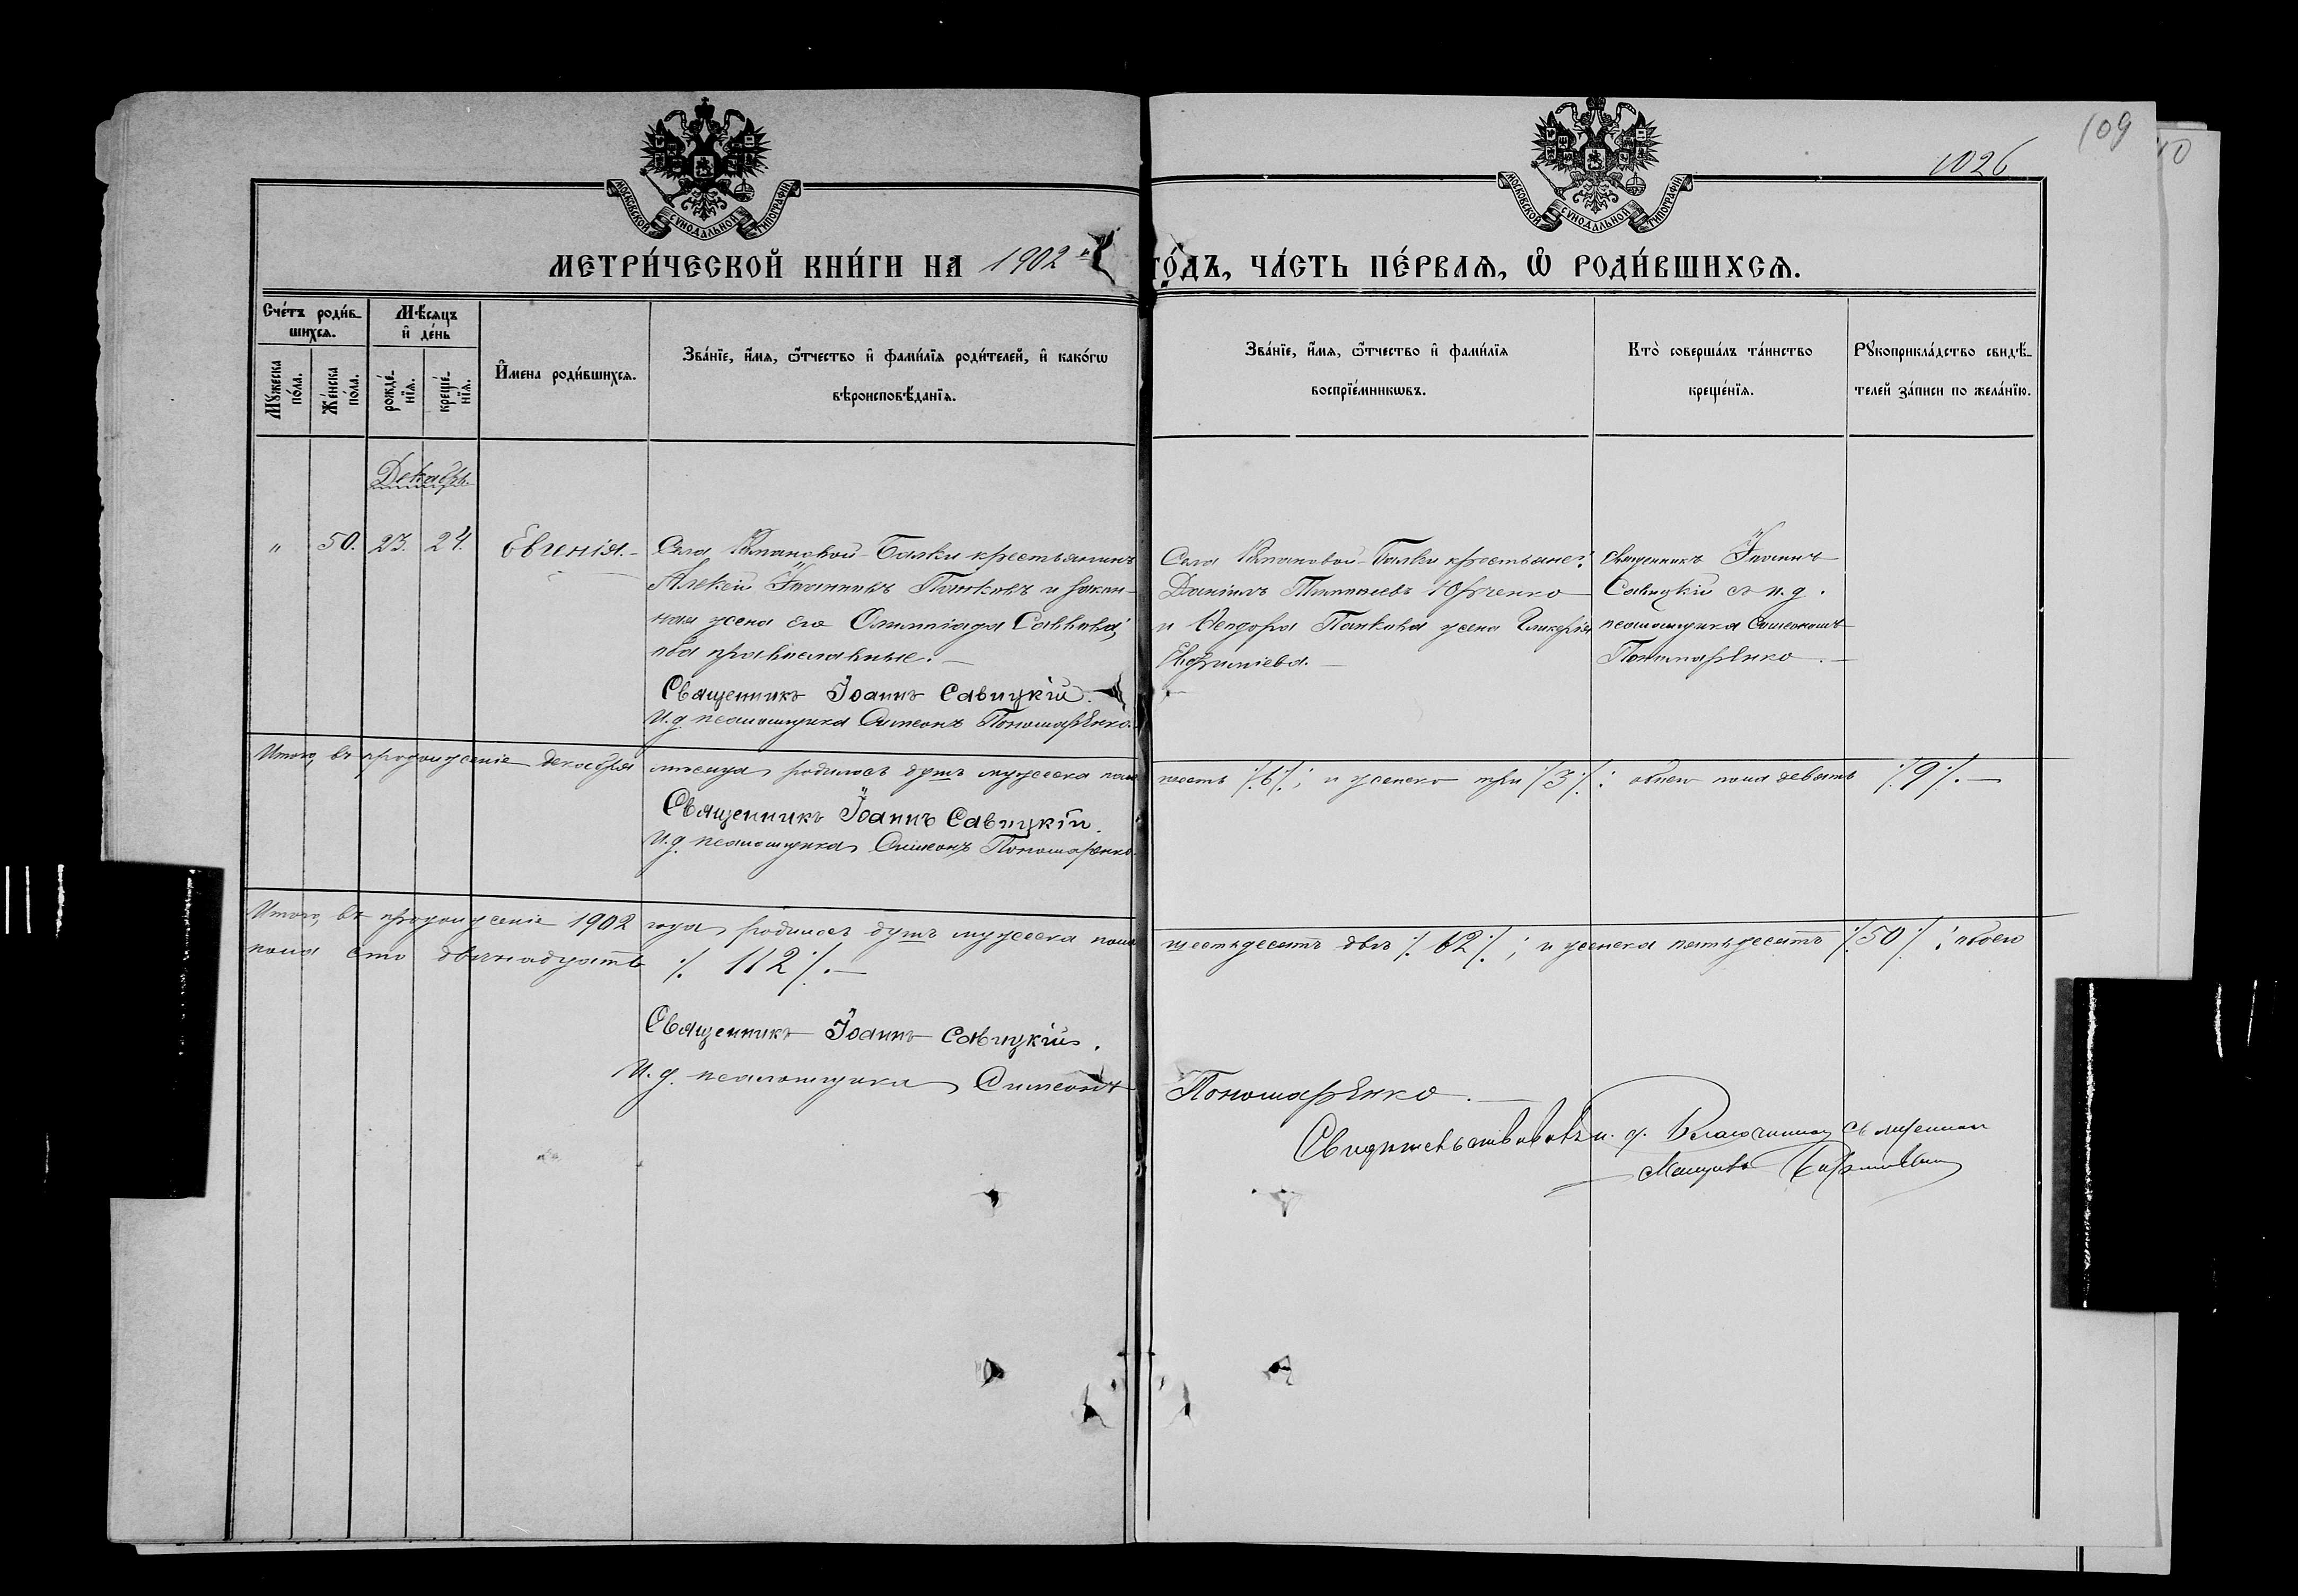 109
10
1026
МОСКОВСКОЙ СѴНОДАЛЬНОЙ ТИПОГРАФІИ
МОСКОВСКОЙ СѴНОДАЛЬНОЙ ТИПОГРАФІИ
МЕТРИ́ЧЕСКОЙ КНИ́ГИ НА 1902 й ГО́ДЪ, ЧА́СТЬ ПЕ́РВАѦ, Ѡ҆ РОДИ́ВШИХСѦ.
Сче́тъ роди́в-
шихсѧ.
Мꙋ́жеска
по́ла.
Же́нска
по́ла.
Мѣ́сѧцъ
и҆ де́нь
рожде́-
нїѧ.
креще́-
нїѧ.
И҆мена роди́вшихсѧ.
Зва́нїе, и҆́мѧ, ѻ҆́тчество и҆ фами́лїѧ роди́телей, и҆ како́гѡ
вѣроисповѣ́данїѧ.
Зва́нїе, и҆́мѧ, ѻ҆́тчество и҆ фами́лїѧ
воспрїе́мникѡвъ.
Кто̀ соверша́лъ та́инство
креще́нїѧ.
Рꙋкоприкла́дство свидѣ́-
телей за́писи по жела́нїю.
Декабрь.
" 50. 23. 24. Евгенія.
Села Балки крестьянинъ
Алексѣй Іоанновъ Панковъ и закон-
ная жена его Олимпіада Саввова,
оба православные.
Священникъ Іоаннъ Савицкій.
И.д. псаломщика Симеонъ Пономаренко.
Села Балки крестьяне:
Даніилъ Юрченко
и Ѳеодора Панкова жена Гликерія
Евфиміева.
Священникъ Іоаннъ
Савицкій съ и.д.
псаломщика Симеономъ
Пономаренко.
Итого, въ продолженіе декабря мѣсяца родилось душъ мужеска пола шесть ⁒6⁒; и женска три ⁒3⁒; обоего пола девять ⁒9⁒.
Священникъ Іоаннъ Савицкій.
И.д. псаломщика Симеонъ Пономаренко
Итого, въ продолженіе 1902 года, родилось душъ мужеска пола шестьдесятъ два ⁒62⁒; и женска пятьдесятъ ⁒50⁒; обоего
пола сто двѣнадцать ⁒112⁒.
Священникъ Іоаннъ Савицкій.
И.д. псаломщика Симеонъ Пономаренко.
Свидѣтельствовалъ и.д. Благочиннаго Священникъ